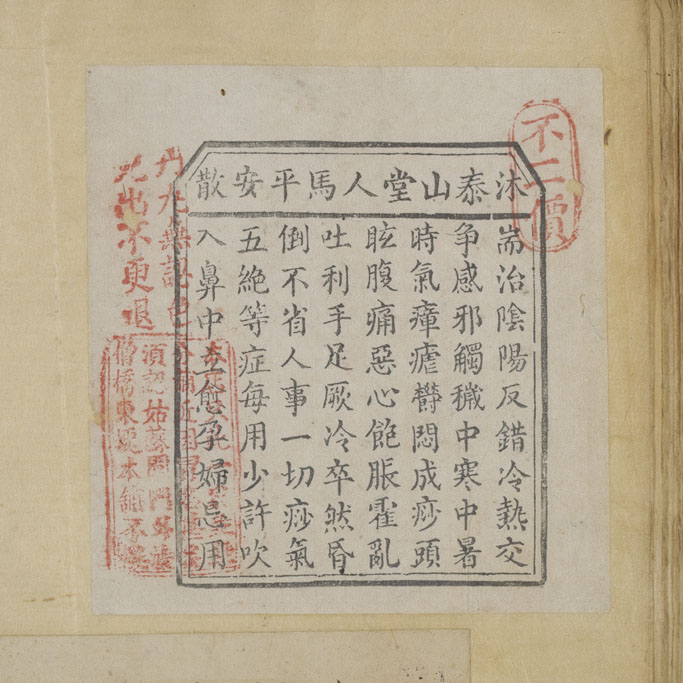 沐泰山堂人馬平安散
耑治陰陽反錯冷熱交
争感邪觸穢中寒中暑
時氣瘴瘧欎悶成痧頭
眩腹痛惡心飽脹霍亂
吐利手足厥冷卒然昏
倒不省人事一切痧氣
五絶等症每用少許吹
入鼻中立愈孕婦忌用
不二價
丹丸無認色
出不更退
須認姑蘇閶門
僧橋東堍本舖不